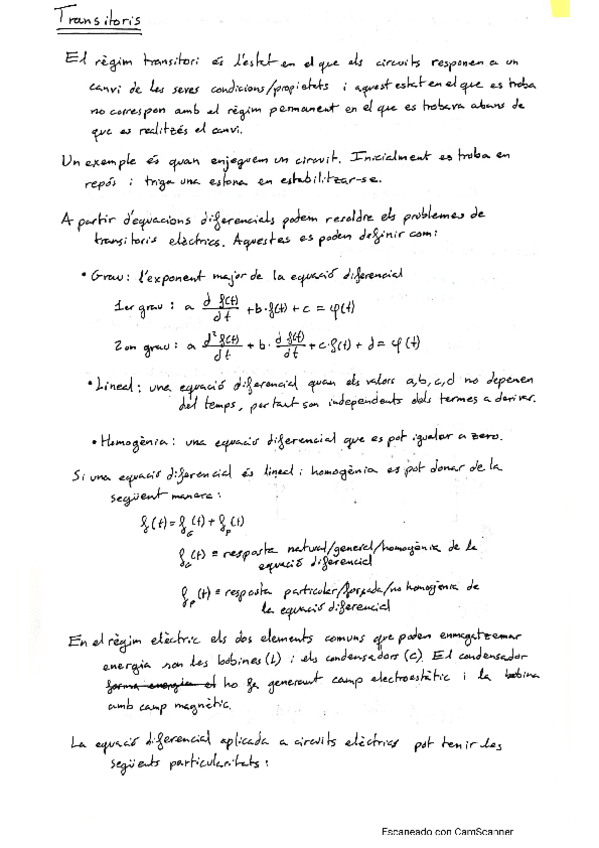 Transitoris
El règim transitori és l'estat en el que els circuits responen a un
canvi de les seves condicions/propietats i aquest estat en el que es troba
no correspon amb el règim permanent en el que es trobava abans de
que es realitzés el canvi.
Un exemple és quan enjeguem un circuit. Inicialment es troba en
repós i triga una estona en estabilitzar-se.
A partir d'equacions diferencials podem resoldre els problemes de
transitoris elèctrics. Aquestes es poden definir com:
• Grau: l'exponent major de la equació diferencial
1er grau: a d f(t)/dt + b·f(t) + c = φ(t)
2on grau: a d² f(t)/dt + b· d f(t)/dt + c·f(t) + d = φ(t)
• Lineal: una equació diferencial quan els valors a,b,c,d no depenen
del temps, per tant son independents dels termes a derivar.
• Homogènia: una equació diferencial que es pot igualar a zero.
Si una equació diferencial és lineal i homogènia es pot donar de la
següent manera:
f(t) = f_G(t) + f_P(t)
f_G(t) = resposta natural/general/homogènia de la
equació diferencial
f_P(t) = resposta particular/forçada/no homogènia de
la equació diferencial
En el règim elèctric els dos elements comuns que poden enmagatzemar
energia son les bobines (L) i els condensadors (C). El condensador
forma energia el ho fa generant camp electroestàtic i la bobina
amb camp magnètic.
La equació diferencial aplicada a circuits elèctrics pot tenir les
següents particularitats:
Escaneado con CamScanner